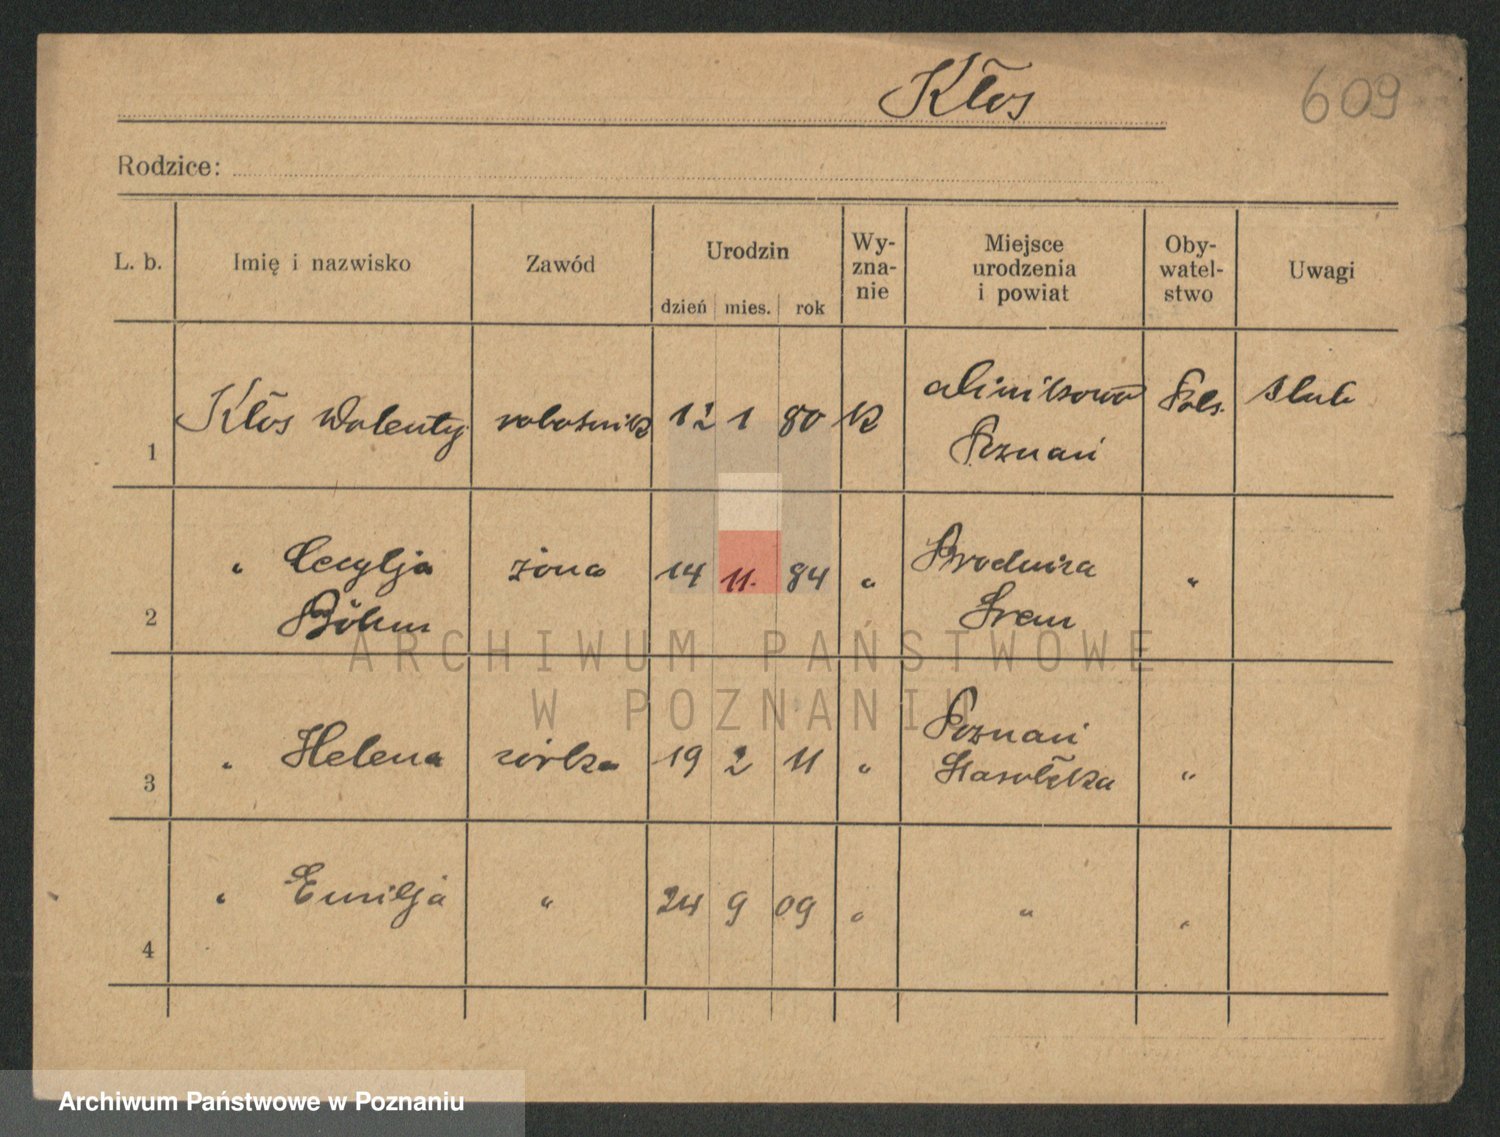 Kłos
609
Rodzice:
L. b. Imię i nazwisko Zawód Urodzin Wy-zna-nie Miejsce urodzenia i powiat Oby-watel-stwo Uwagi
dzień mies. rok
1 Kłos Walenty robotnik 12 1 80 K Poznań Pols. ślub
2 " Cecylja Böhm żona 14 11. 84 " Brodnica Śrem "
3 " Helena córka 19 2 11 " Poznań Starołęka "
4 " Emilja " 24 9 09 " " "
ARCHIWUM PAŃSTWOWE
W POZNANIU
Archiwum Państwowe w Poznaniu